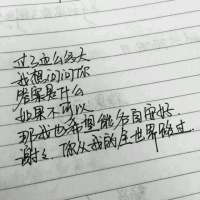 过了这么多天
我想问问你
结果是什么
如果不可以
那我也希望能各自安好
谢谢你从我的全世界路过.